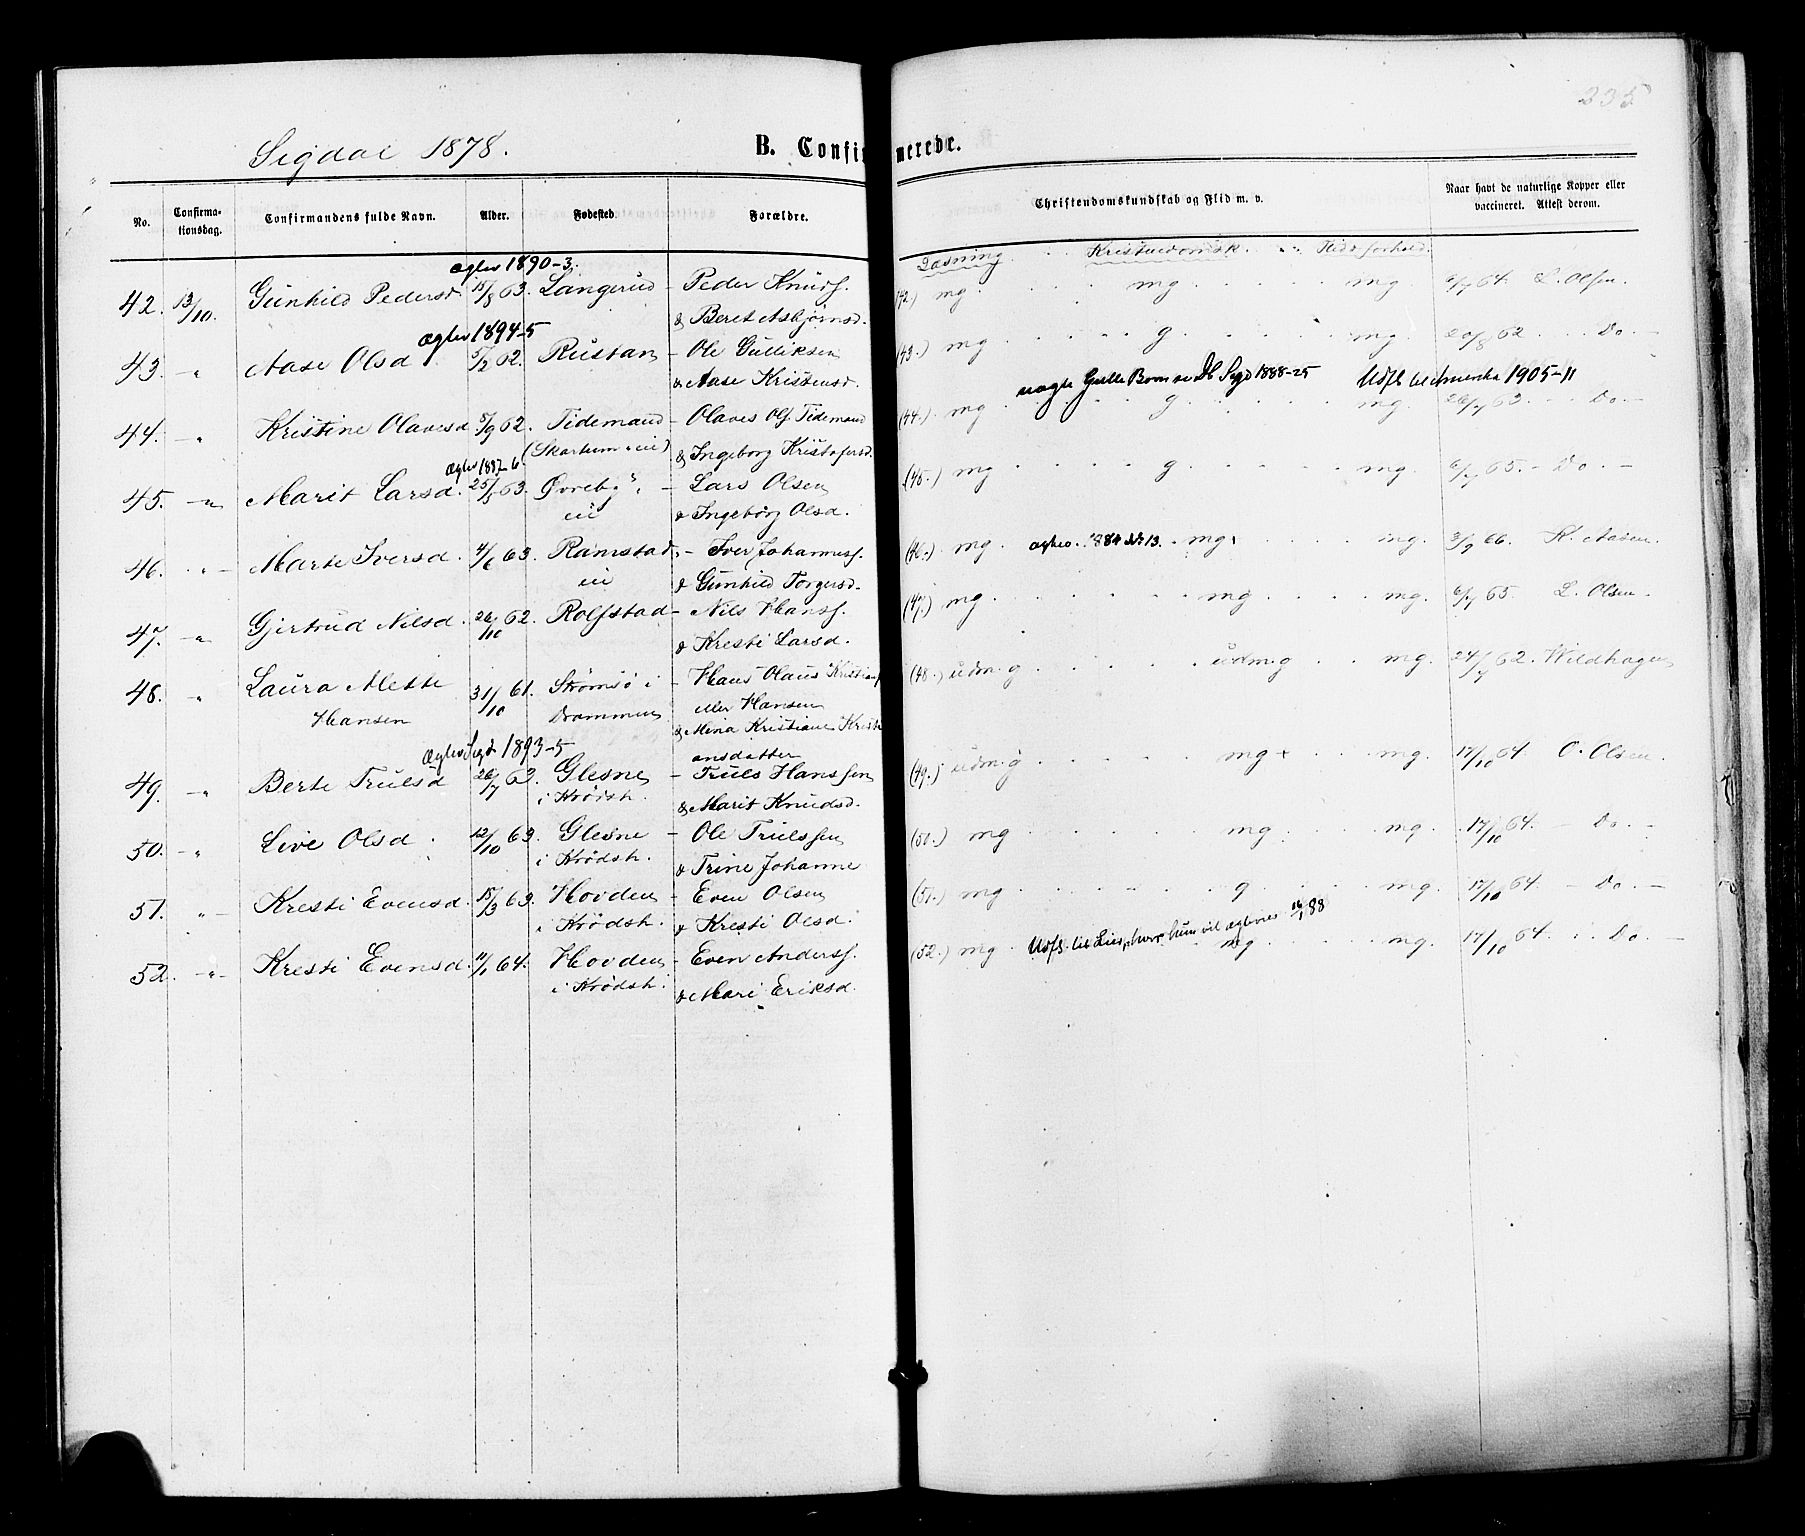 335
Sigdal 1878.
B. Confirmerede.
No.
Confirma-
tionsdag.
Confirmandens fulde Navn.
Alder.
Fødested.
Forældre.
Christendomskundskab og Flid m. v.
Naar havt de naturlige Kopper eller
vaccineret. Attest derom.
Læsning. Kristendomsk. Flidsforhold.
ægtev 1890-3.
42. 13/10. Gunhild Pedersd. 15/8 63. Langerud - Peder Knuds.
& Beret Asbjørnsd.
(42.) mg mg mg. 6/7 64. L. Olsen.
ægtev 1894-5
43. -"- Aase Olsd. 5/2 62. Rustan - Ole Gulliksen
& Aase Kristensd.
(43.) mg g mg. 20/8 62 Do -
Gulle Sigd 1888-25 Udfl til Amerika 1905-11
44. -"- Kristine Olavesd. 5/9 62. Tidemand - Olaves Ols. Tidemand
(Skartum eie) & Ingeborg Kristofersd.
(44.) mg g mg. 26/7 63. Do. -
ægtev 1887-6.
45. -"- Marit Larsd. 25/5 63. Øvreby - Lars Olsen
eie & Ingeborg Olsd.
(45.) mg g mg. 6/7 65. - Do. -
46. -"- Marte Iversd. 4/6 63. Ramstad - Iver Johanness.
eie & Gunhild Torgersd.
(46.) mg ægtev. 1884 No 13. mg mg. 3/9 66. K. Aasen.
47. -"- Gjertrud Nilsd. 26/10 62. Rolfstad - Nils Hanss.
& Kresti Larsd.
(47.) mg mg mg. 6/7 65. L. Olsen.
48. " Laura Mette 31/10 61. Strømsø i - Hans Olaus Kristians
Hansen Drammen eller Hansen
& Mina Kristiane Kristi
ansdatter
(48.) udm.g udm.g mg. 24/7 62. Wildhagen
ægtev Sigd 1893-5
49. " Berte Trulsd 26/7 63. Glesne - Truls Hanssen
i Krødsh. & Marit Knudsd.
(49.) udm.g mg + mg. 17/10 64. O. Olsen.
50. -"- Live Olsd. 12/10 63. Glesne - Ole Trulssen
i Krødsh. & Trine Johanne
(50.) mg mg mg. 17/10 64. - Do. -
51. "- Kresti Evensd. 15/3 63. Hovden - Even Olsen
i Krødsh. & Kresti Olsd.
(51.) mg g mg. 17/10 64. - Do. -
52. -"- Kresti Evensd. 11/1 64. Hovden - Even Anderss.
i Krødsh. & Mari Eriksd.
(52.) mg Udfl. til Lier, hvor hun vil ægtevies 16/1 88
mg mg. 17/10 64. Do. -